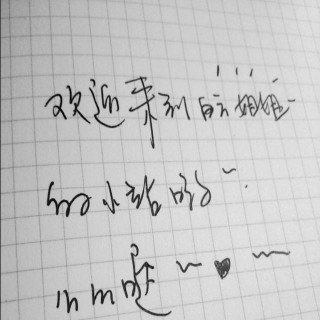 欢迎来到白云姐姐~
的小站哟~.
mm哒~♥~